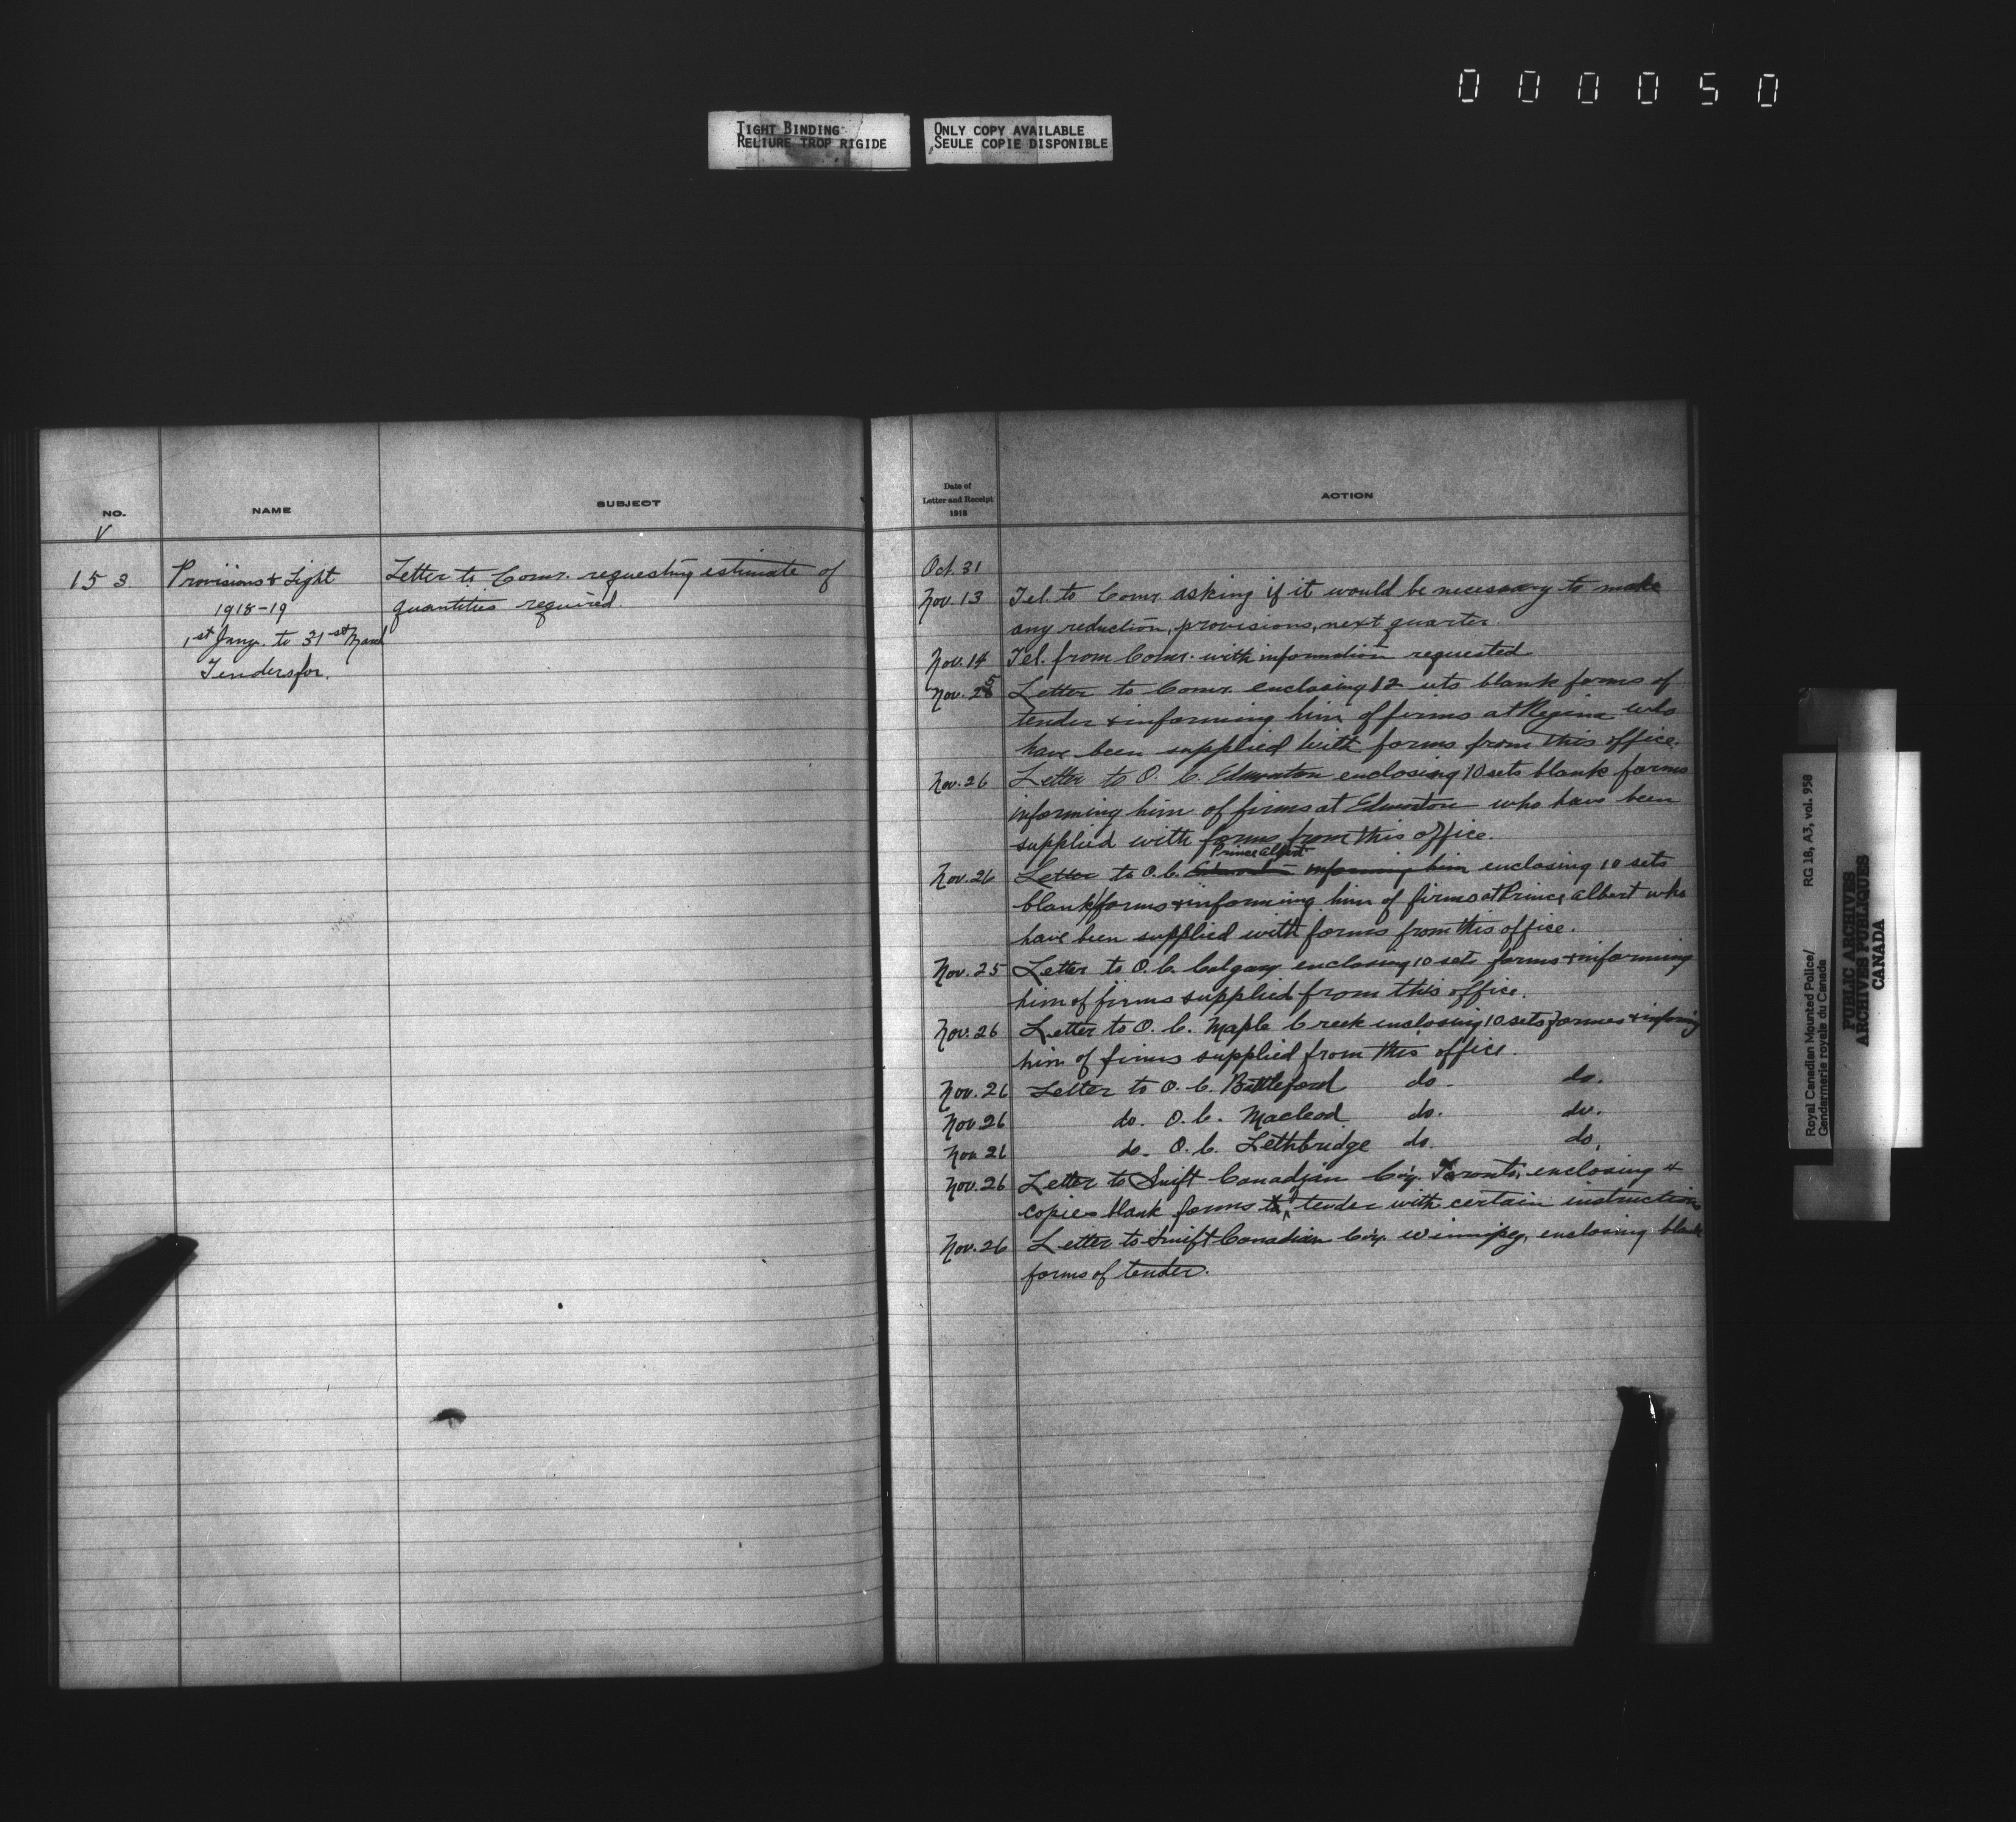 000050
TIGHT BINDING
RELIURE TROP RIGIDE
ONLY COPY AVAILABLE
SEULE COPIE DISPONIBLE
NO.
NAME
SUBJECT
V
153
Provisions & Light
1918-19
1st Jany. to 31st March
Tenders for.
Letter to Comr. requesting estimate of
quantities required.
Date of
Letter and Receipt
1918
ACTION
Oct. 31
Nov. 13 Tel. to Comr. asking if it would be necessary to make
any reduction, provisions, next quarter.
Nov. 14 Tel. from Comr. with information requested
Nov. 25 Letter to Comr. enclosing 12 sets blank forms of
tender & informing him of firms at Regina who
have been supplied with forms from this office.
Nov. 26 Letter to O. C. Edmonton enclosing 10 sets blank forms
informing him of firms at Edmonton who have been
supplied with forms from this office.
Prince Albert
Nov. 26 Letter to O. C. Edmonton informing him enclosing 10 sets
blank forms & informing him of firms at Prince Albert who
have been supplied with forms from this office.
Nov. 25 Letter to O. C. Calgary enclosing 10 sets forms & informing
him of firms supplied from this office.
Nov. 26 Letter to O. C. Maple Creek enclosing 10 sets forms & informing
him of firms supplied from this office.
Nov. 26 Letter to O. C. Battleford do. do.
Nov 26 do. O. C. Macleod do. do.
Nov 26 do. O. C. Lethbridge do. do.
Nov. 26 Letter to Swift Canadian Co'y. Toronto, enclosing 4
copies blank forms of tender with certain instructions
Nov. 26 Letter to Swift Canadian Co'y. Winnipeg, enclosing blank
forms of tender.
Royal Canadian Mounted Police/
Gendarmerie royale du Canada
RG 18, A3, vol. 958
PUBLIC ARCHIVES
ARCHIVES PUBLIQUES
CANADA